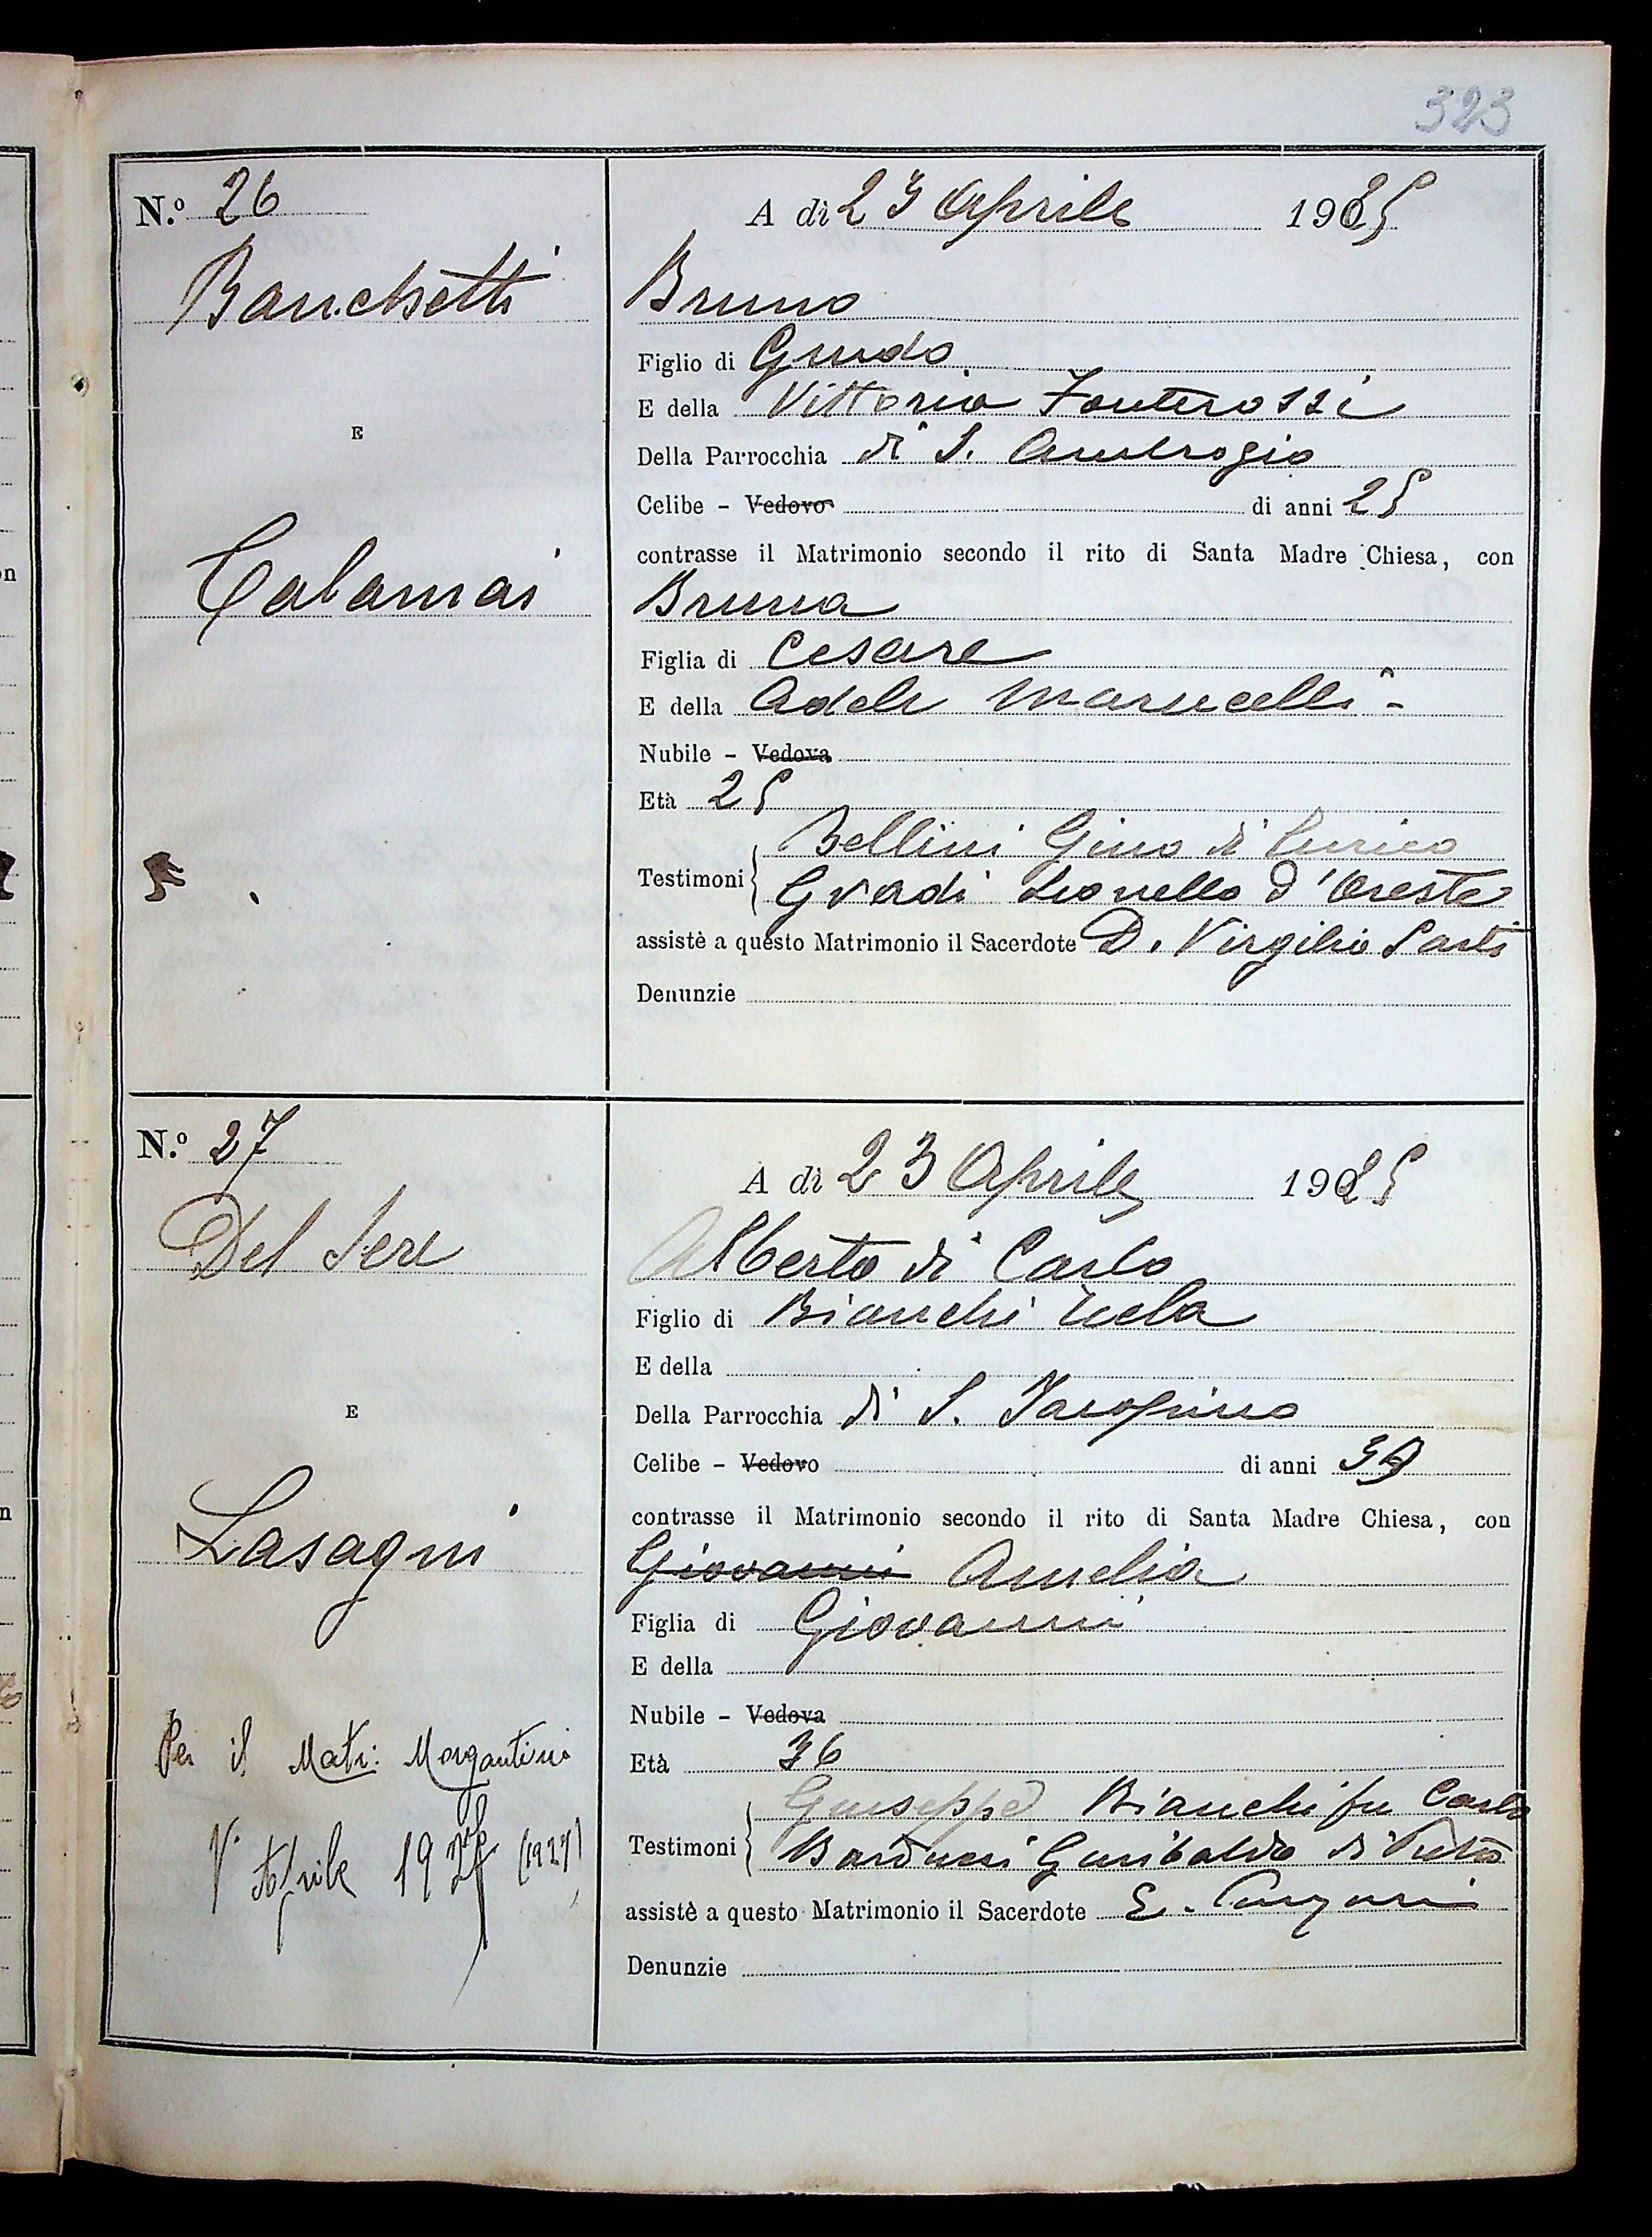 323
N.º 26
A dì 23 Aprile 1925
Banchetti
Bruno
Figlio di Guido
E della Vittoria Fonterossi
E
Della Parrocchia di S. Ambrogio
Celibe - Vedovo di anni 25
contrasse il Matrimonio secondo il rito di Santa Madre Chiesa, con
Calamai
Bruna
Figlia di Cesare
E della Adele Marucelli -
Nubile - Vedova
Età 25
Testimoni
Bellini Gino di Enrico
Gvadi Leonello d'Oreste
assistè a questo Matrimonio il Sacerdote D. Virgilio Sarti
Denunzie
N.º 27
A dì 23 Aprile 1925
Del Sere
Alberto di Carlo
Figlio di Bianchi
E della
E
Della Parrocchia di S. Jacopino
Celibe - Vedovo di anni 39
contrasse il Matrimonio secondo il rito di Santa Madre Chiesa, con
Lasagni
Giovanni Amelia
Figlia di Giovanni
E della
Nubile - Vedova
Età 36
Testimoni
Giuseppe Bianchi fu Carlo
Barducci Garibaldo di Pietro
assistè a questo Matrimonio il Sacerdote E.
Denunzie
Per il Matr: Morgantini
V. Aprile 1927 (1927)